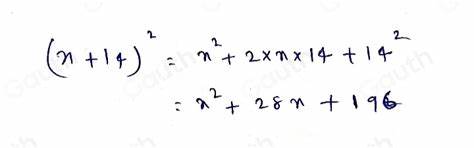 (x+14)² = x² + 2×x×14 + 14²
= x² + 28x + 196